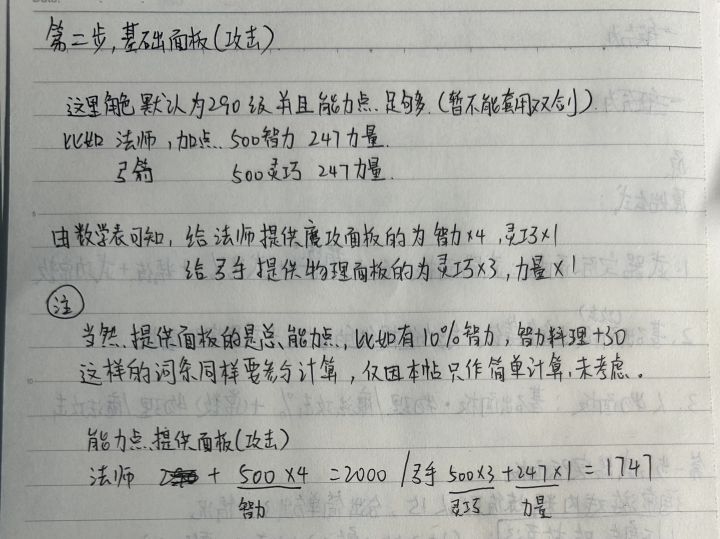 第二步,基础面板(攻击)
这里角色默认为290级并且能力点足够多.(暂不能套用双剑).
比如 法师,加点.500智力 247力量.
弓箭 500灵巧 247力量.
由数学表可知,给法师提供魔攻面板的为 智力×4,灵巧×1
给弓手提供物理面板的为灵巧×3,力量×1
注
当然,提供面板的是总能力点,比如有10%智力,智力料理+30
这样的词条同样要参与计算,仅因本帖只作简单计算,未考虑。
能力点提供面板(攻击)
法师 + 500×4 =2000 /弓手 500×3 +247×1 = 1747
智力 灵巧 力量